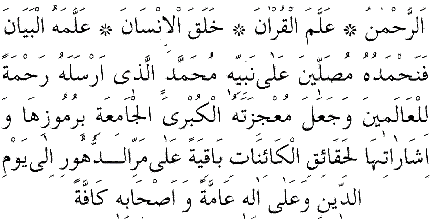 اَلرَّحْمٰنُ * عَلَّمَ الْقُرْاٰنَ * خَلَقَ الْاِنْسَانَ * عَلَّمَهُ الْبَيَانَ
فَنَحْمَدُهُ مُصَلِّينَ عَلٰى نَبِيِّهِ مُحَمَّدٍ الَّذِى اَرْسَلَهُ رَحْمَةً
لِلْعَالَمِينَ وَجَعَلَ مُعْجِزَتَهُ الْكُبْرٰى الْجَامِعَةَ بِرُمُوزِهَا وَ
اِشَارَاتِهَا لِحَقَائِقِ الْكَائِنَاتِ بَاقِيَةً عَلٰى مَرِّ الدُّهُورِ اِلٰى يَوْمِ
الدِّينِ وَعَلٰى اٰلِهِ عَامَّةً وَ اَصْحَابِهِ كَافَّةً